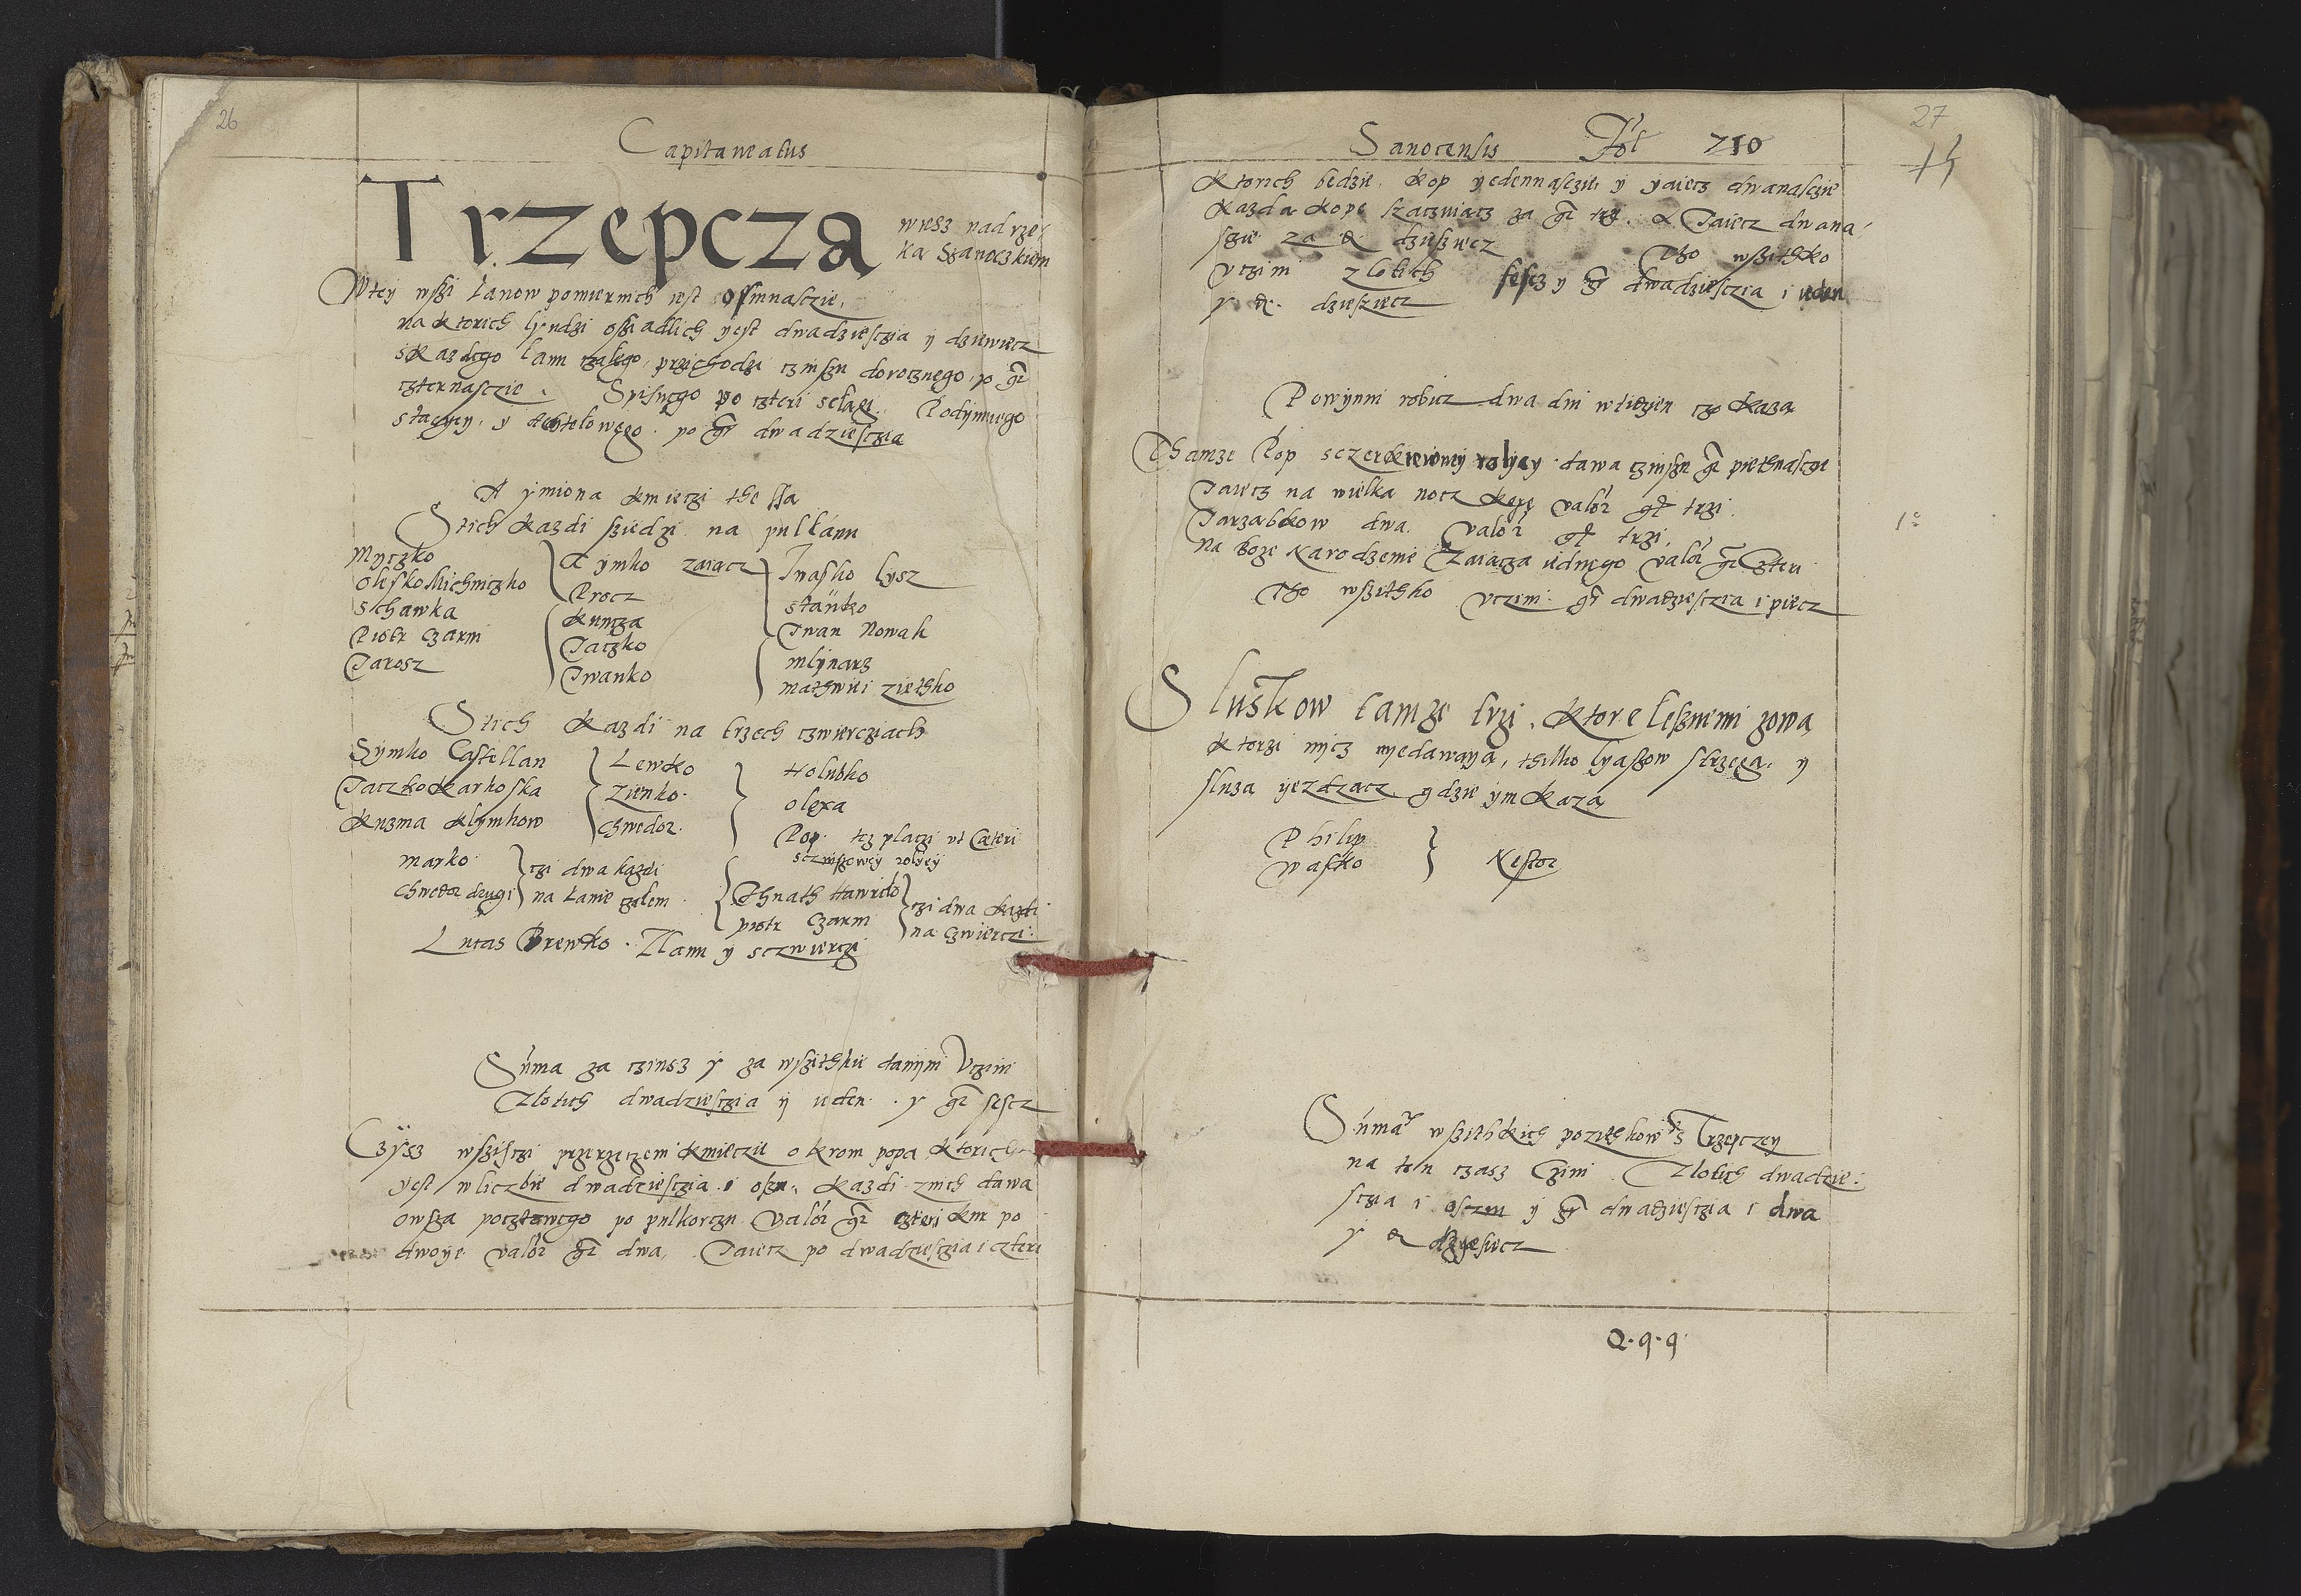 26
Capitaneatus
Trzepcza
wiesz nad rze-
ka Szanoczkiem
W tey wszi łanow pomiernich iest ossmnasczie,
na ktorich lyudzi osziadlich yest dwadziesczia y dziewiecz
s kazdego łanu czalego, przichodzi czinszu dorocznego, po gr
czternasczie. Spisnego po czteri selagi. Podymnego
staczyey, y po gr dwadziesczia
A ymiona kmieczi the ssa
S tich kazdi sziedzi na pulłanu
Myczko
Olesko Michniczko
Schawka
Piotr Czarni
Jarosz
Rymko zaiacz
Procz
Kuncza
Jaczko
Iwanko
Iwasko lysz
Stanko
Iwan Nowak
mlynarz
mathwiei ziethko
S tich kazdi na trzech czwiercziach
Symko Castellan
Jaczko Karkoska
Kuzma klymkow
Lewko
Zienko
Chwedor
Holubko
olexa
Pop tez placzi vt Cæteri
rolyey
marko
Chwedor drugi
czi dwa kazdi
na łanie czalem
Ihnath Hawrilo
piotr Czarni
czi dwa kazdi
na czwierczi
Lucas Brewko. Z łanu y sczwierczi
Suma za czinsz y za wszithkie daniny Vczini
Zlotich dwadziesczia y ieden. y gr sescz
Czysz wszisczi przerzeczeni kmieczie okrom popa, ktorich
yest w liczbie dwadziesczia i oszm. Kazdi z nich dawa
owsza pocztowego po pulkorczu valor gr czteri kur po
dwoye valor gr dwa, Jaiecz po dwadziesczia i czteri
27
Sanocensis Fol 210
15
Ktorich bedzie, kop yedennasczie, y yaiecz dwanasczie
Kazda kope szaczuiacz za gr trzi. A Jaiecz dwana-
sczie za d dziesziecz Tho wszithko
Vczini zlotich sescz y gr dwadziesczia i ieden
y d. dziesziecz
Powynni robicz dwa dni w tidzien czo kaza
Thamze Pop s czerkiewney rolyey dawa czinszu gr piethnasczie
Jaiecz na wielka nocz kope valor gr trzi
Jarzabkow dwa. Valor gr trzi,
na Boze Narodzenie Zaiacza iednego valor gr Czteri
Tho wszithko vczini gr dwadziesczia i piecz
1º
Sluskow tamze trzi. Ktore lesznemi zowa
Ktorzi nicz nyedawaya, thilko lyassow strzega. y
sluza yezdzacz gdzie ym kaza
Philip
Wasko
Nestor
Suma wszithkich pozithkow s Trzepczey
na ten czasz Czini. Zlotich dwadzie-
sczia i oszm y gr dwadziesczia i dwa
y d dzyesiecz
Q. q. q.